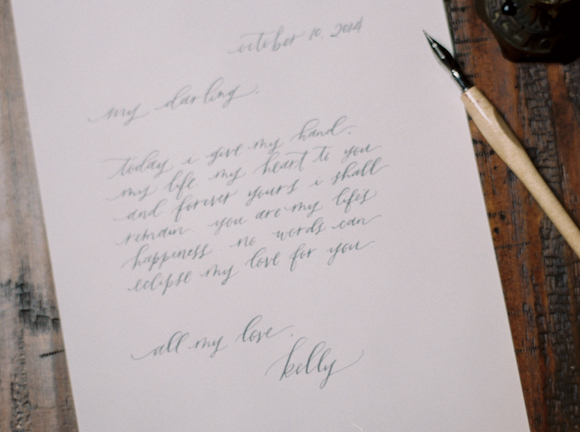 october 10. 2014
my darling.
today i give my hand.
my life. my heart to you
and forever yours i shall
remain. you are my life's
happiness. no words can
eclipse my love for you
all my love.
kelly